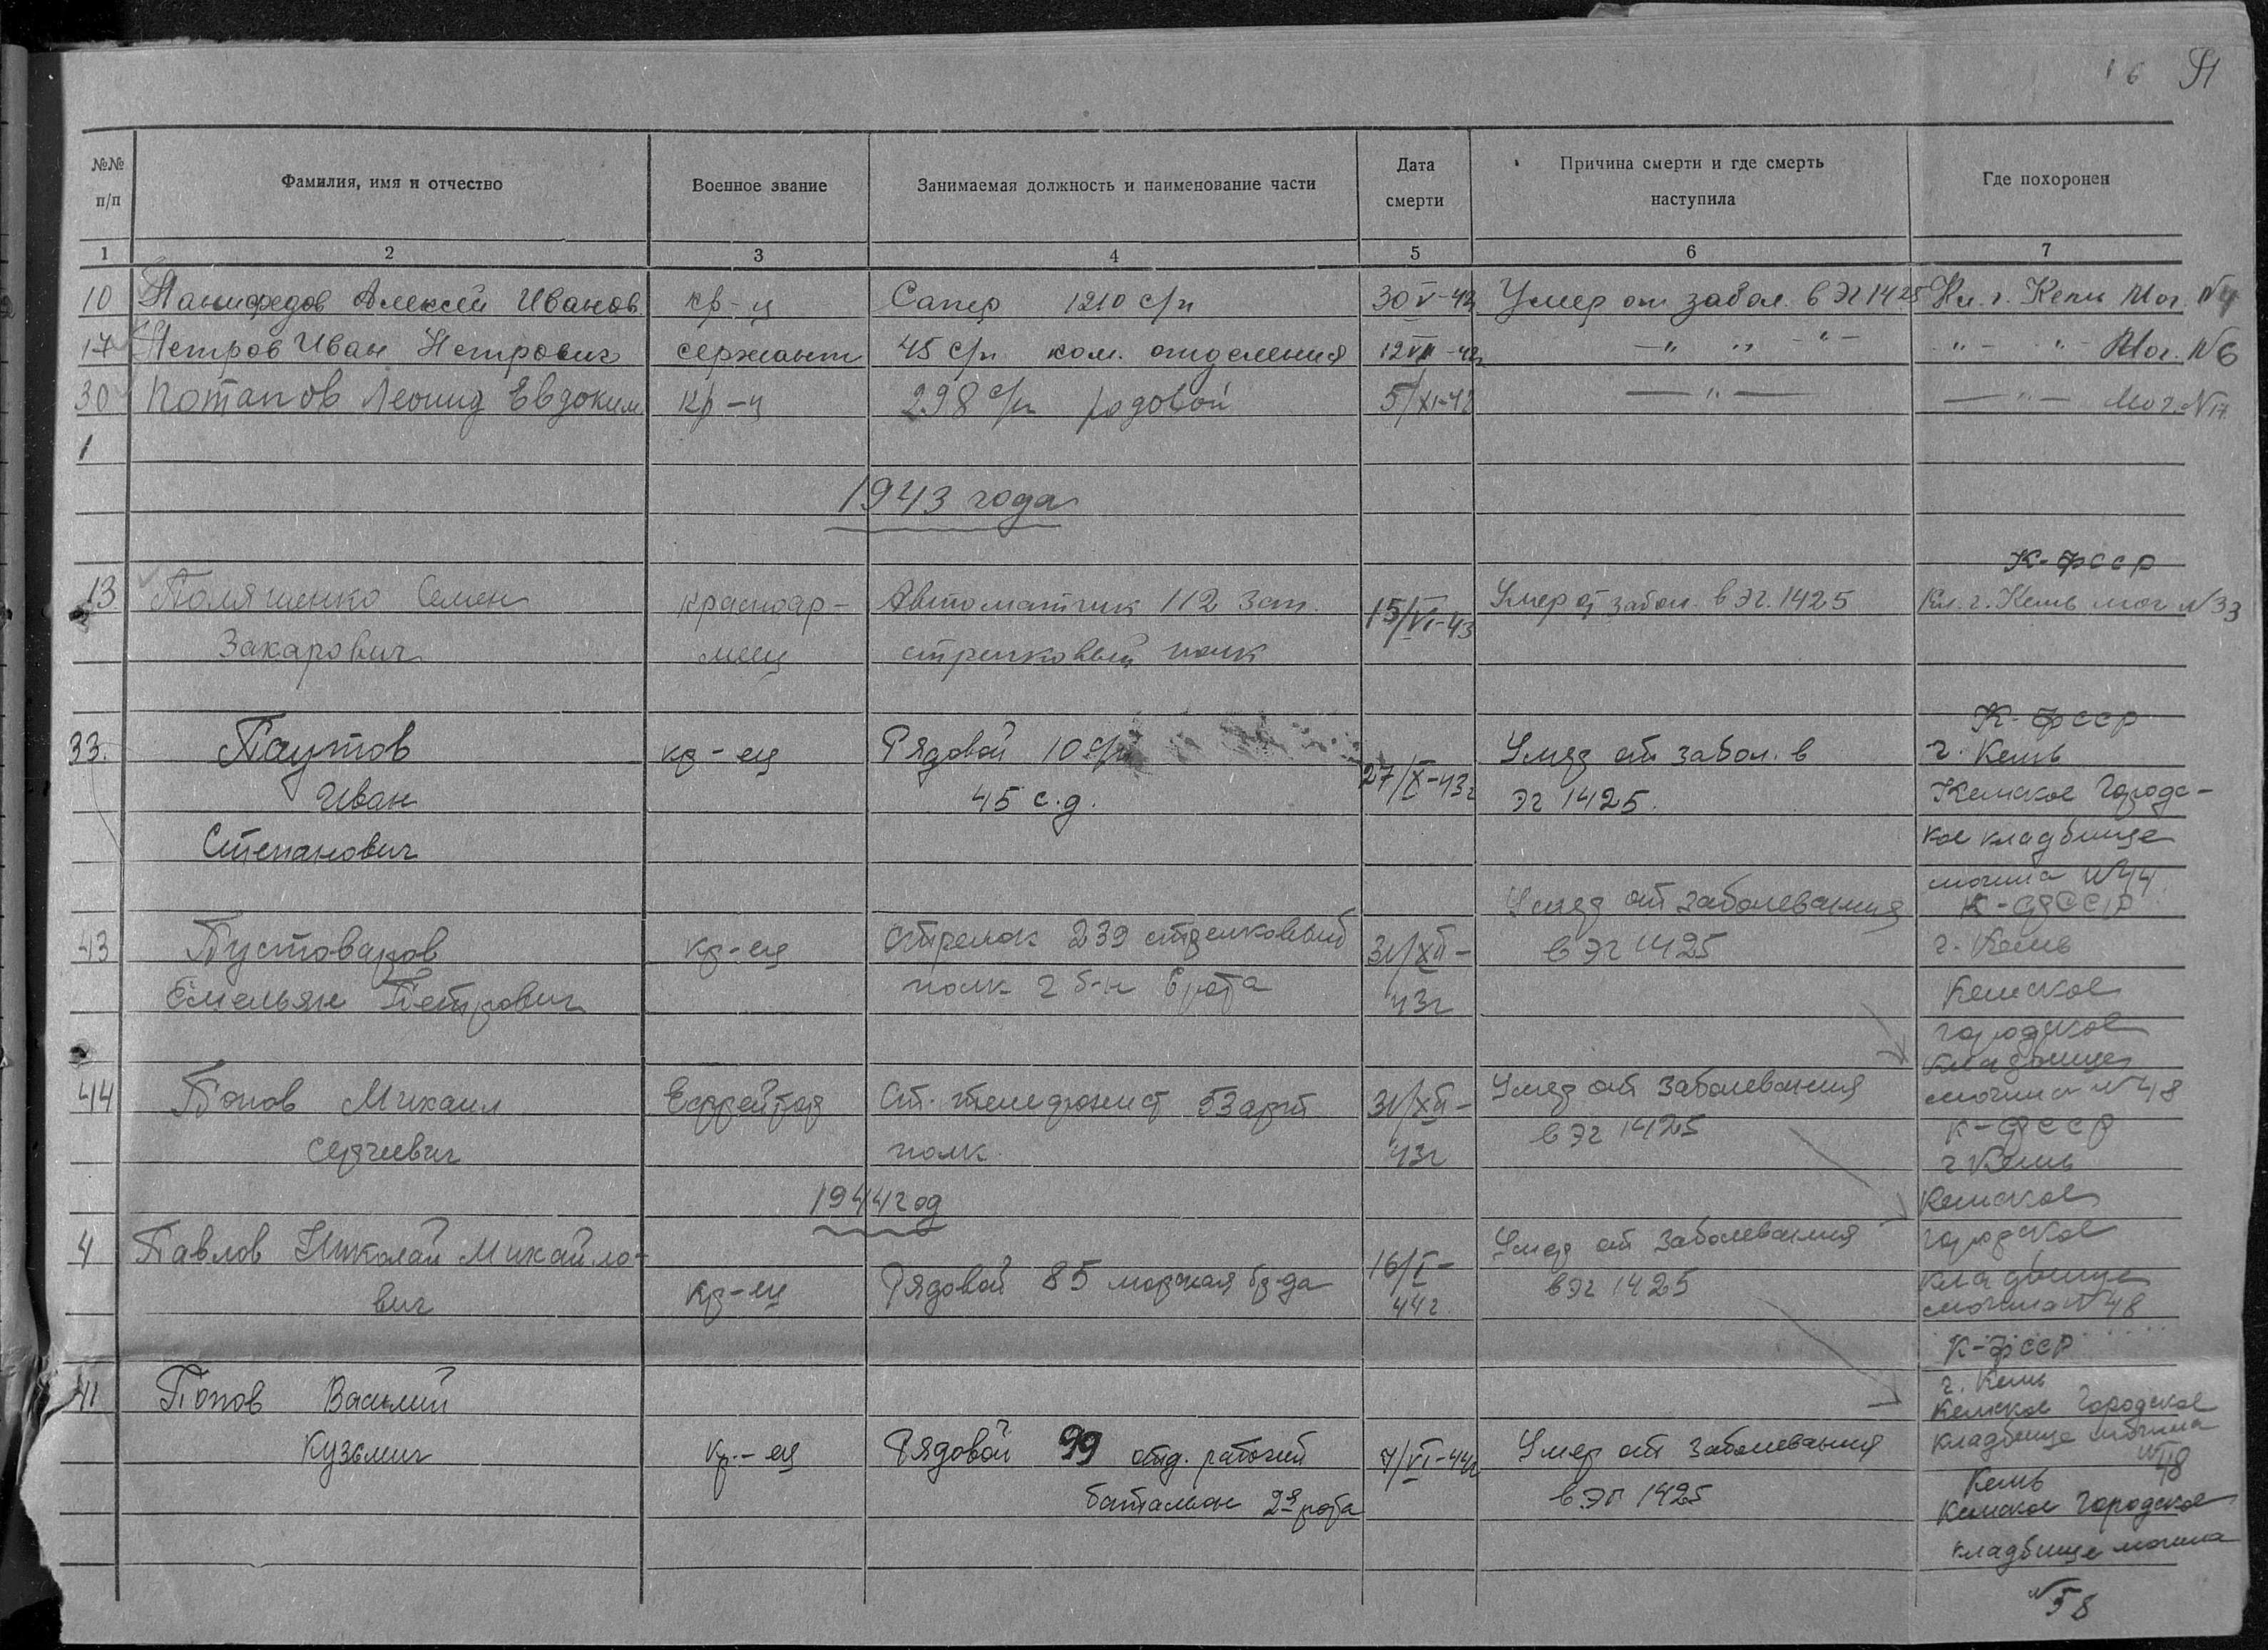 16 51
№№ п/п Фамилия, имя и отчество Военное звание Занимаемая должность и наименование части Дата смерти Причина смерти и где смерть наступила Где похоронен
1 2 3 4 5 6 7
10 Алексей Иванов. кр-ц Сапер 1210 с/п 30 V-42 Умер от забол. в ЭГ 1425 Кл. г. Кемь Мог. №4
17 Петров Иван Петрович сержант 45 с/п ком. отделения 12 -42г —"— " —"— "— "— Мог. №6
30 Потапов Леонид Евдоким кр-ц 298 с/п рядовой 5/XI-42 —"— —"— Мог. №17
1
1943 года
К-ФССР
13 Семен Краснодар- Автоматчик 112 зап. 15/VI-43 Умер от забол. в ЭГ. 1425 Кл. г. Кемь мог №33
Захарович меец стрелковый полк
К-ФССР
33. Паутов кр-ец Рядовой 10 с/п 27/X-43г Умер от забол. в г. Кемь
Иван 45 с.д. ЭГ 1425. Кемское Городс-
Степанович кое кладбище
могила №44
Умер от заболевания К-ФССР
43 Пустоваров кр-ец Стрелок 239 стрелковый 31/XII- в ЭГ 1425 г. Кемь
Емельян Петрович полк 2 б-н 6 рота 43г Кемское
городское
кладбище
44 Попов Михаил Ефрейтор Ст. телефонист 53 арт 31/XII- Умер от заболевания могила №48
Сергеевич полк. 43г в ЭГ 1425 К-ФССР
г Кемь
1944 год Кемское
4 Павлов Николай Михайло- Умер от заболевания городское
вич кр-ец Рядовой 85 морская бр-да 16/I-44г. в ЭГ 1425 кладбище
могила №48
К-ФССР
41 Попов Василий г. Кемь
Кемское Городское
Кузьмич кр.-ец Рядовой 99 отд. рабочий 7/VI-44г Умер от заболевания кладбище могила
№48
батальон 2я рота в ЭГ 1425 Кемь
Кемское Городское
кладбище могила
№58